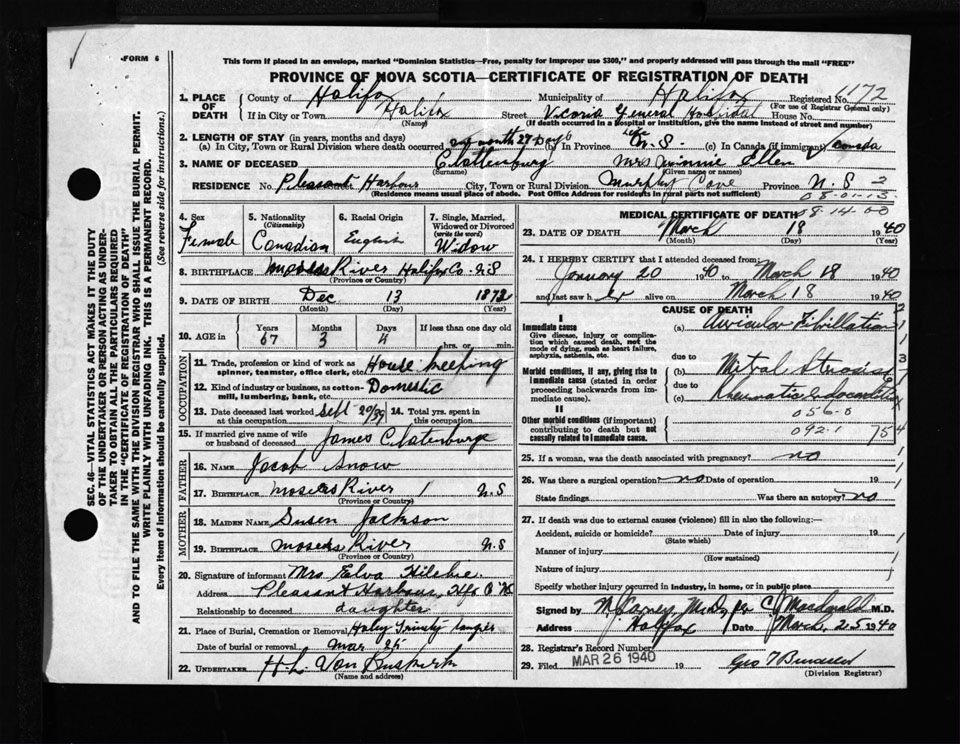 FORM 6
This form if placed in an envelope, marked "Dominion Statistics—Free, penalty for improper use $300," and properly addressed will pass through the mail "FREE"
PROVINCE OF NOVA SCOTIA—CERTIFICATE OF REGISTRATION OF DEATH
1. PLACE OF DEATH
County of Halifax Municipality of Halifax Registered No. 1172
(For use of Registrar General only)
If in City or Town Halifax Street Victoria General Hospital House No.
(Name) (If death occurred in a Hospital or Institution, give the name instead of street and number)
2. LENGTH OF STAY (in years, months and days)
(a) In City, Town or Rural Division where death occurred month 27 Days (b) In Province Life N.S. (c) In Canada (if immigrant) Canada
3. NAME OF DECEASED Clattenburg Mrs Minnie Ellen
(Surname) (Given name or names)
RESIDENCE No. Pleasant Harbour City, Town or Rural Division Murphy Cove Province N.S
(Residence means usual place of abode. Post Office Address for residents in rural parts not sufficient)
08-01-13
08-14-00
4. Sex Female
5. Nationality (Citizenship) Canadian
6. Racial Origin English
7. Single, Married, Widowed or Divorced (write the word) Widow
8. BIRTHPLACE Mosers River Halifax Co. N.S
(Province or Country)
9. DATE OF BIRTH Dec 13 1872
(Month) (Day) (Year)
10. AGE in Years 67 Months 3 Days 4 If less than one day old hrs. or min.
OCCUPATION
11. Trade, profession or kind of work as spinner, teamster, office clerk, etc. House keeping
12. Kind of industry or business, as cotton-mill, lumbering, bank, etc. Domestic
13. Date deceased last worked at this occupation Sept 20/39
14. Total yrs. spent in this occupation
15. If married give name of wife or husband of deceased James Clatenburge
FATHER
16. NAME Jacob Snow
17. BIRTHPLACE Mosers River N.S
(Province or Country)
MOTHER
18. MAIDEN NAME Susen Jackson
19. BIRTHPLACE Mosers River N.S
(Province or Country)
20. Signature of informant Mrs Elva Hilchie
Address Pleasant Harbour, Hfx Co N.S
Relationship to deceased daughter
21. Place of Burial, Cremation or Removal Holey Trinity tangier
Date of burial or removal Mar 25
22. UNDERTAKER H.L. Van Buskirk
(Name and address)
MEDICAL CERTIFICATE OF DEATH
23. DATE OF DEATH March 18 1940
(Month) (Day) (Year)
24. I HEREBY CERTIFY that I attended deceased from:
January 20 1940 to March 18 1940
and last saw her alive on March 18 1940
CAUSE OF DEATH
I
Immediate cause
Give disease, injury or complication which caused death, not the mode of dying, such as heart failure, asphyxia, asthenia, etc.
(a) Auricular Fibrillation
due to
Morbid conditions, if any, giving rise to immediate cause (stated in order proceeding backwards from immediate cause).
(b) Mitral Stenosis
due to
(c) Rheumatic Endocarditis
II
Other morbid conditions (if important) contributing to death but not causally related to immediate cause.
056-0
092-1
754
25. If a woman, was the death associated with pregnancy? no
26. Was there a surgical operation? no Date of operation 19
State findings Was there an autopsy? no
27. If death was due to external causes (violence) fill in also the following:
Accident, suicide or homicide? Date of injury 19
(State which)
Manner of injury
(How sustained)
Nature of injury
Specify whether injury occurred in industry, in home, or in public place
Signed by M James M.D. per C J Macdonald M.D.
Address Halifax Date March. 25 1940
28. Registrar's Record Number
29. Filed MAR 26 1940 19
(Division Registrar)
SEC. 46—VITAL STATISTICS ACT MAKES IT THE DUTY
OF THE UNDERTAKER OR PERSON ACTING AS UNDERTAKER TO OBTAIN ALL THE PARTICULARS REQUIRED
IN THE "CERTIFICATE OF REGISTRATION OF DEATH"
AND TO FILE THE SAME WITH THE DIVISION REGISTRAR WHO SHALL ISSUE THE BURIAL PERMIT.
WRITE PLAINLY WITH UNFADING INK. THIS IS A PERMANENT RECORD.
Every item of information should be carefully supplied. (See reverse side for instructions.)